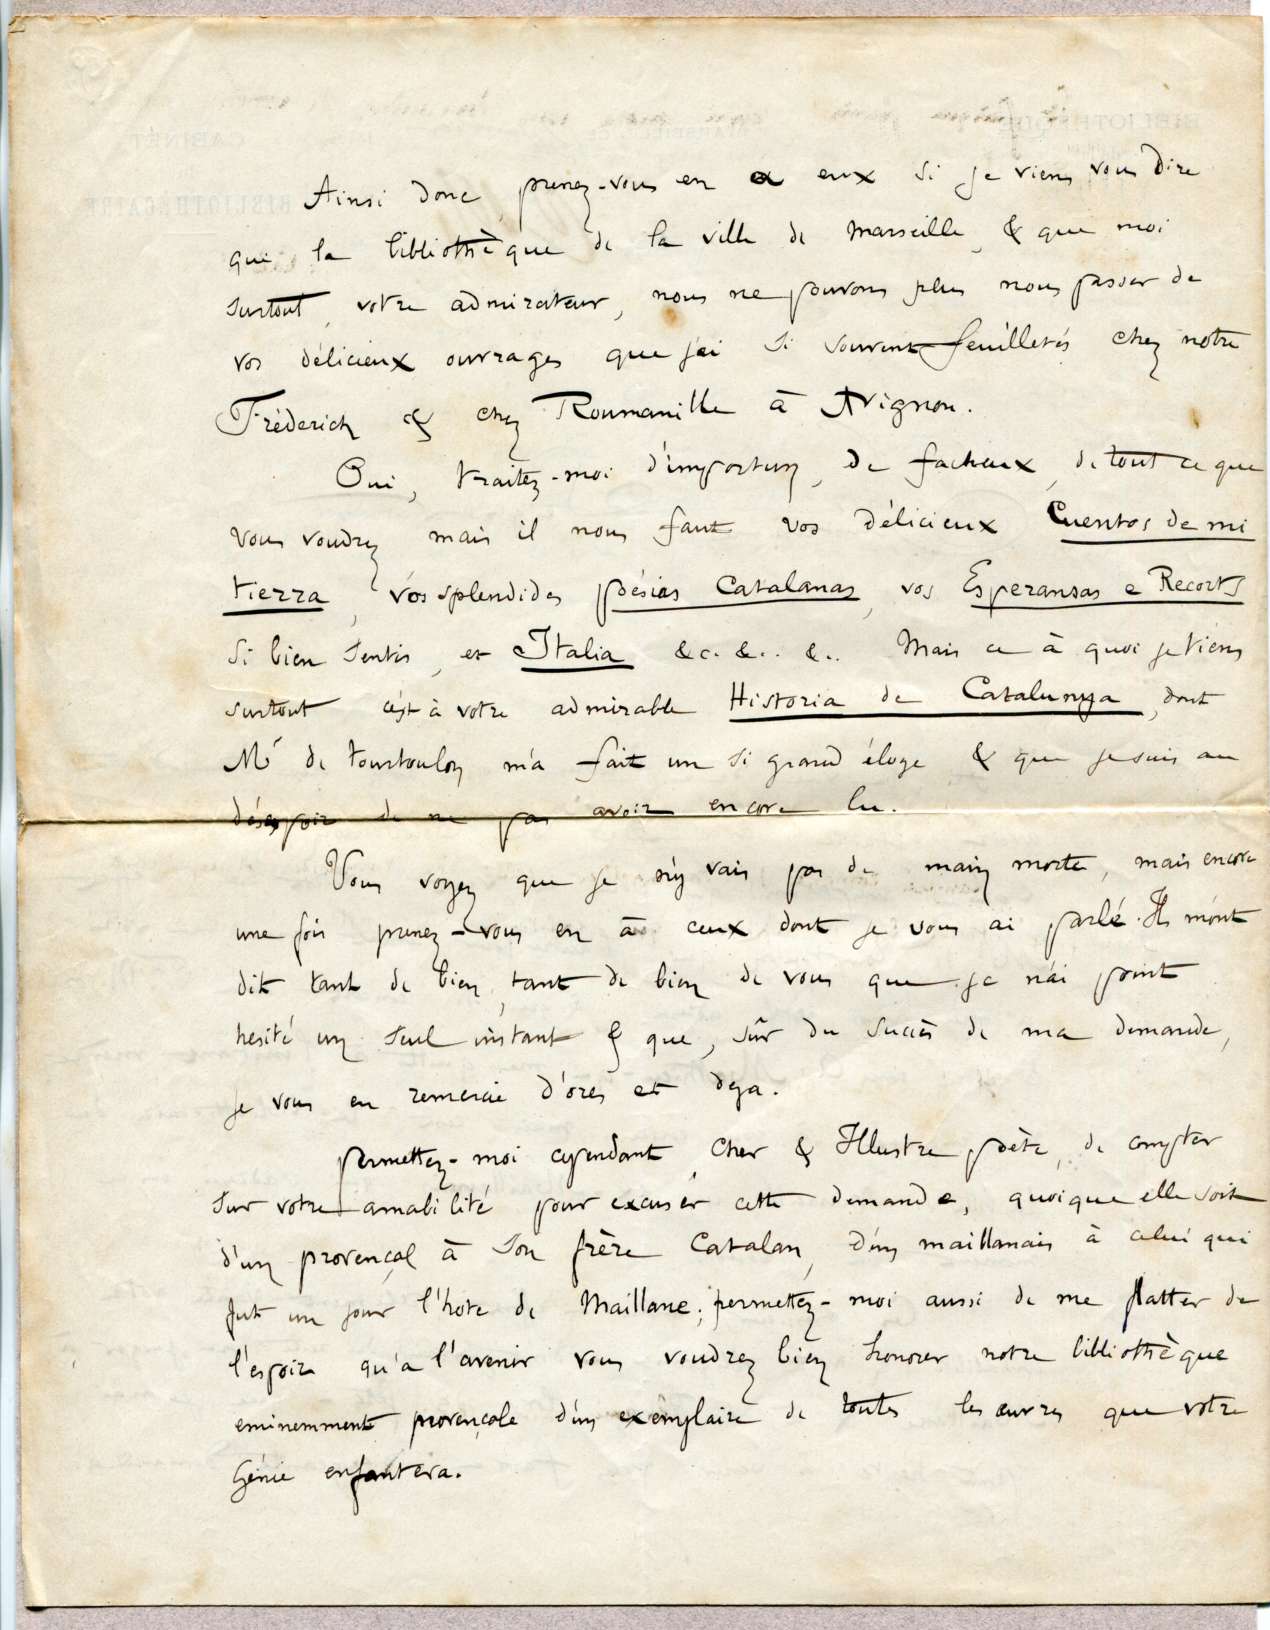 Ainsi donc, prenez-vous en a eux si je viens vous dire
que la bibliothèque de la ville de Marseille, & que moi
surtout, votre admirateur, nous ne pouvons plus nous passer de
vos délicieux ouvrages que j'ai si souvent feuilletés chez notre
Fréderich & chez Roumanille à Avignon.
Oui, traitez-moi d'importun, de facheux, de tout ce que
vous voudrez mais il nous faut vos délicieux Cuentos de mi
tierra, vos splendides poésias Catalanas, vos Esperansas e Recorts
si bien sentis, et Italia &c. &.. &.. Mais ce à quoi je tiens
surtout c'est à votre admirable Historia de Catalunya, dont
Mr de Tourtoulon m'a fait un si grand éloge & que je suis au
désespoir de ne pas avoir encore lu.
Vous voyez que je n'y vais pas de main morte, mais encore
une fois prenez-vous en à ceux dont je vous ai parlé. Ils m'ont
dit tant de bien, tant de bien de vous que je n'ai point
hesité un seul instant & que, sûr du succès de ma demande,
je vous en remercie d'ores et deja.
permettez-moi cependant, Cher & Illustre poète, de compter
sur votre amabilité pour excuser cette demande, quoique elle soit
d'un provençal à son frère Catalan, d'un maillanais à celui qui
fut un jour l'hote de Maillane; permettez-moi aussi de me flatter de
l'espoir qu'a l'avenir vous voudrez bien honorer notre bibliothèque
eminemment provençale d'un exemplaire de toutes les œuvres que votre
Génie enfantera.